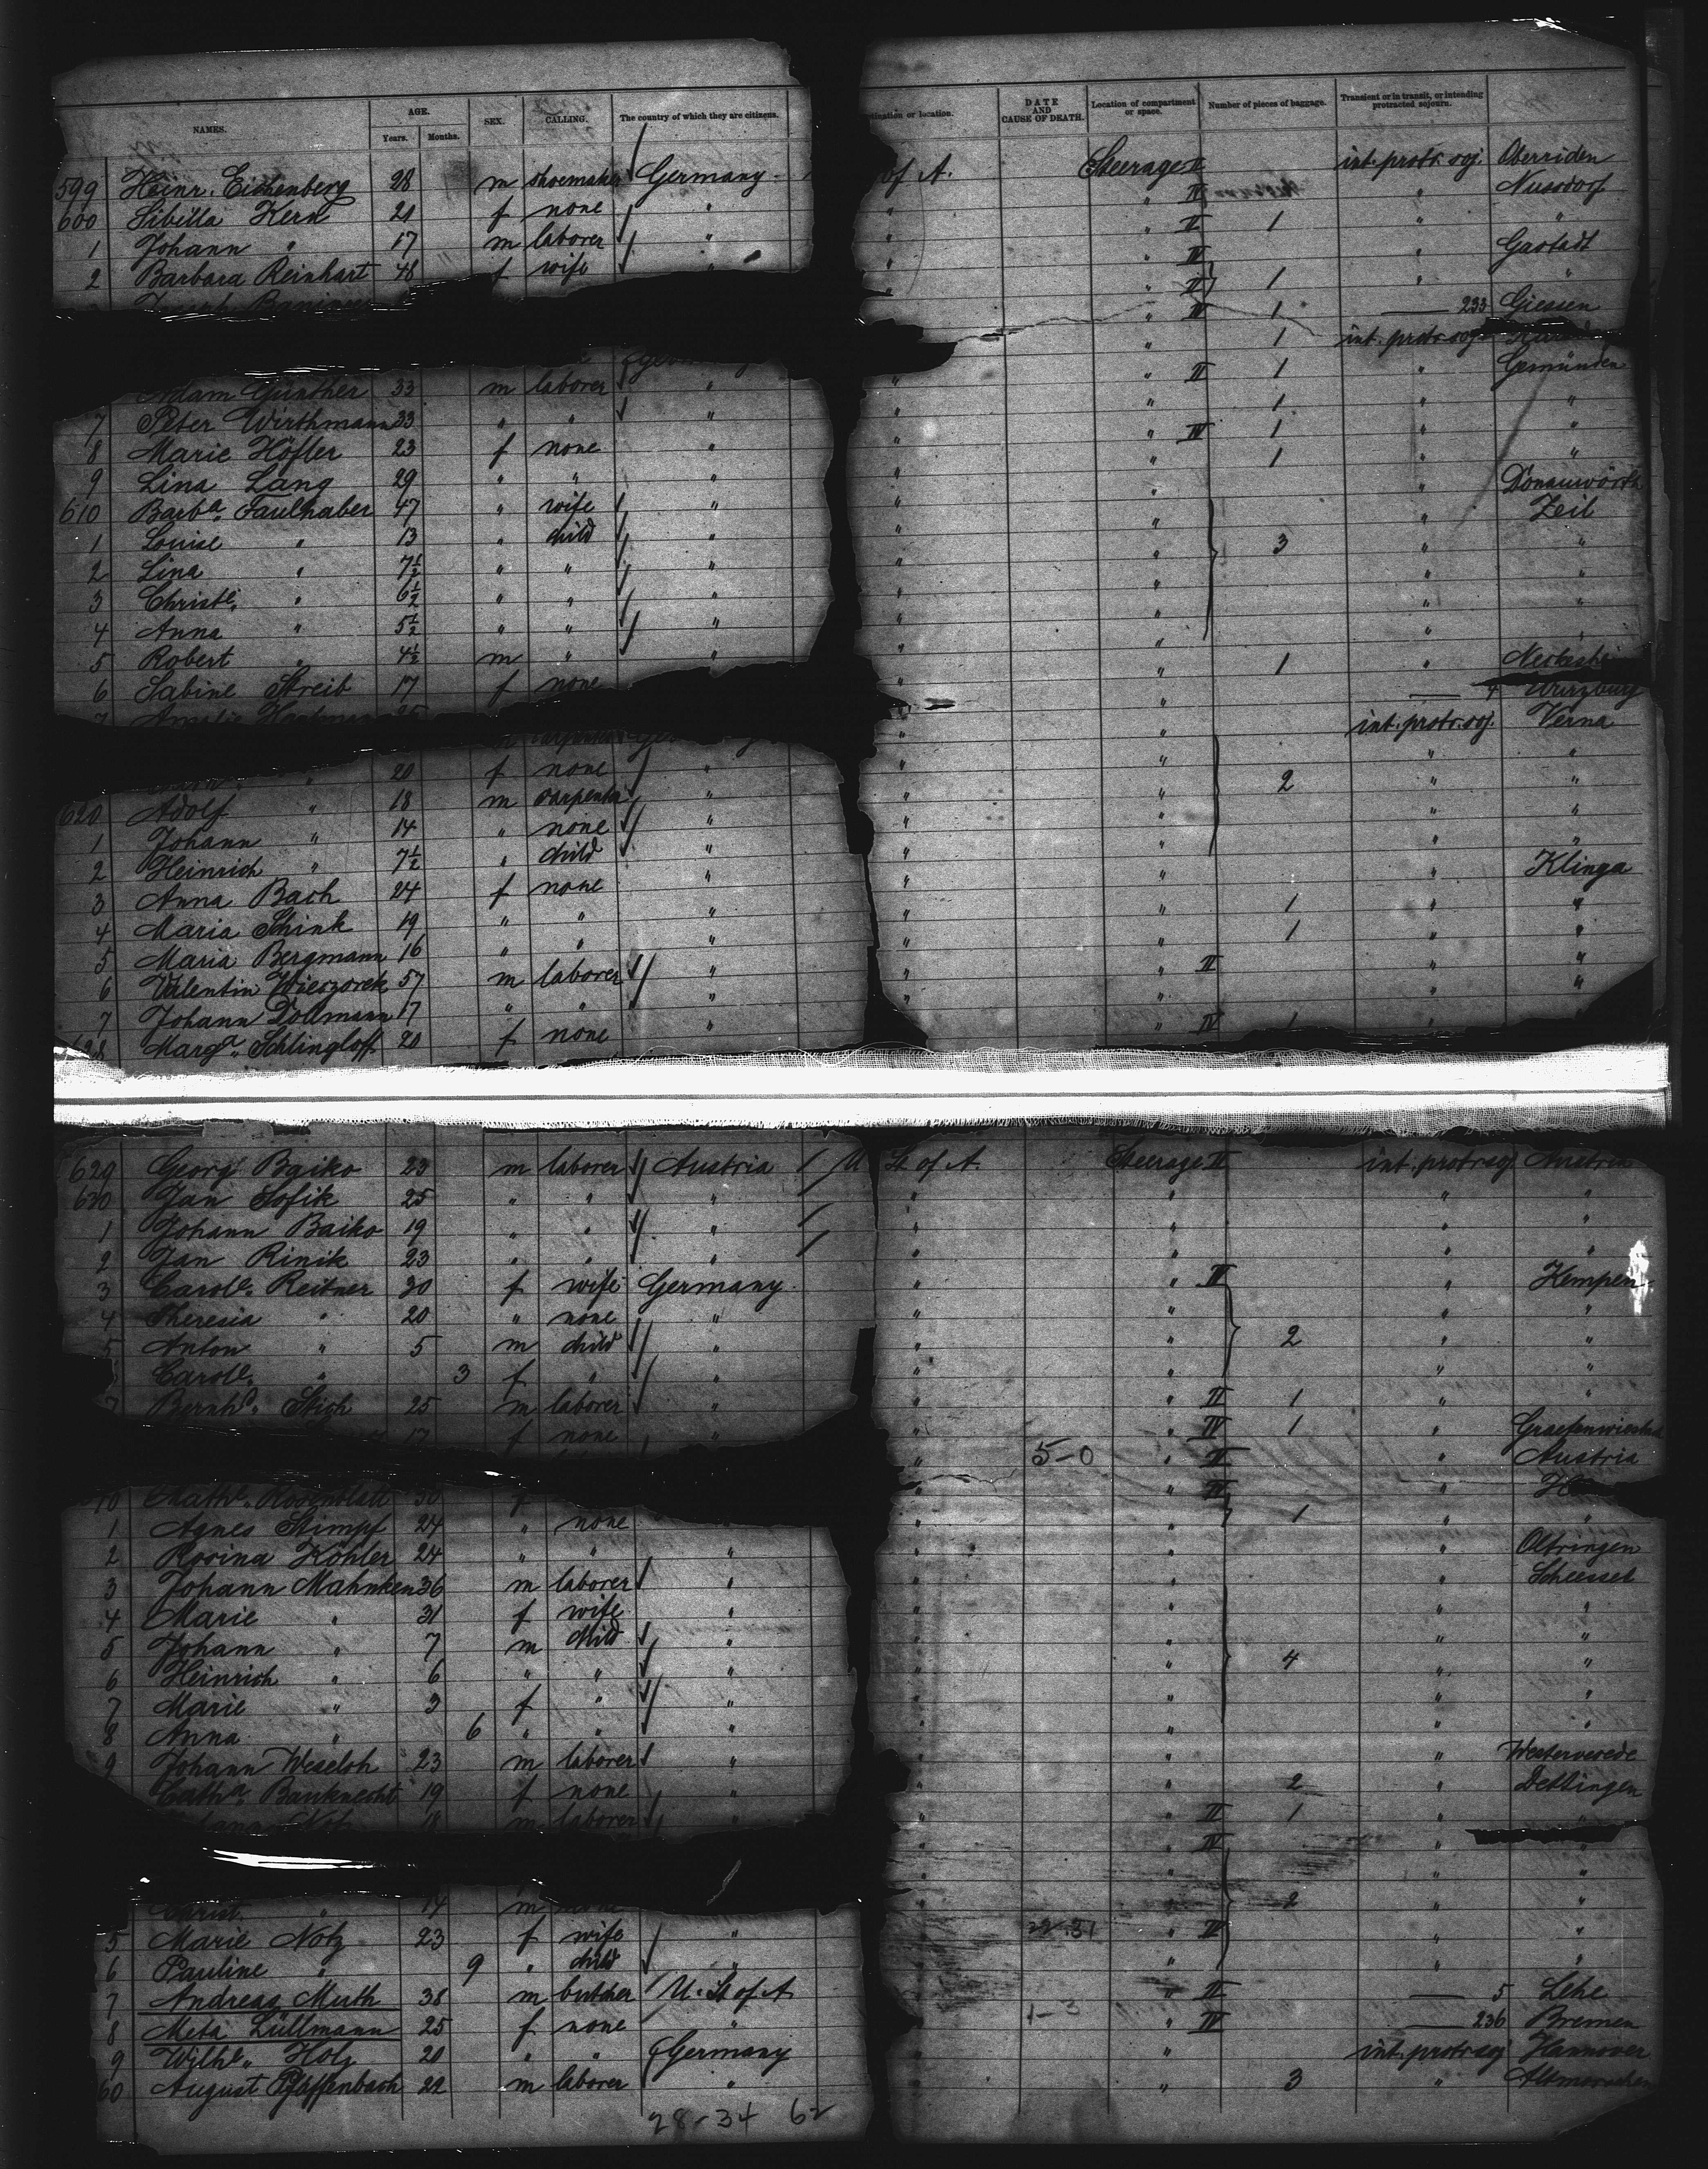 NAMES. AGE. Years. Months. SEX. CALLING. The country of which they are citizens. location. DATE AND CAUSE OF DEATH. Location of compartment or space. Number of pieces of baggage. Transient or in transit, or intending protracted sojourn.
599 Heinr. Eichenberg 28 m shoemaker Germany of A. Steerage II int. protr. soj. Oberriden
600 Sibilla Kern 21 f none " " " IV " Nussdorf
1 Johann " 17 m laborer " " " II 1 " "
2 Barbara Reinhart 48 f wife " " IV " Gastadt
" II 1 " "
" IV 1 — 233 Giessen
" 1 int. protr. soj.
Adam Günther 33 m laborer " " " II 1 " Gemünden
7 Peter Wirthmann 33 " " " " " 1 " "
8 Marie Höfler 23 f none " " " IV 1 " "
9 Lina Lang 29 " " " " " 1 " "
610 Barba. Faulhaber 47 " wife " " " " Donauwörth
1 Louise " 13 " child " " " " Zeil
2 Lina " 7½ " " " " " 3 " "
3 Christe. " 6½ " " " " " " "
4 Anna " 5½ " " " " " " "
5 Robert " 4½ m " " " " " "
6 Sabine Streib 17 f none " " 1 "
— 4 Würzburg
int. protr. soj. Verna
" 20 f none " " " " "
620 Adolf " 18 m carpenter " " " 2 " "
1 Johann " 14 " none " " " " "
2 Heinrich " 7½ " child " " " " "
3 Anna Bach 24 f none " " " " Klinga
4 Maria Schink 19 " " " " " 1 " "
5 Maria Bergmann 16 " " " " " 1 " "
6 Valentin Wieczorek 57 m laborer " " II " "
7 Johann Dollmann 17 " " " " " "
628 Marga. Schlingloff 20 f none " " IV 1 "
629 Georg Baiko 23 m laborer Austria / U St of A. Steerage II int. protr. soj. Austria
630 Jan Sofik 25 " " " / " " " "
1 Johann Baiko 19 " " " / " " " "
2 Jan Rinik 23 " " " / " " " "
3 Carole. Reitner 30 f wife Germany " " IV " Kempen
4 Theresia " 20 " none " " " " "
5 Anton " 5 m child " " " 2 " "
Carole. " 3 f " " " " " "
7 Bernhd. Stich 25 m laborer " " " II 1 " "
17 f none " " " IV 1 "
" 5-0 " II " Austria
10 Cathe. Rosenblatt 30 f " " IV "
1 Agnes Stimpf 24 " none " " 1 " "
2 Rosina Köhler 24 " " " " " " Oltringen
3 Johann Mahnken 36 m laborer " " " " Scheessel
4 Marie " 31 f wife " " " " "
5 Johann " 7 m child " " " " "
6 Heinrich " 6 " " " " " 4 " "
7 Marie " 3 f " " " " " "
8 Anna " 6 " " " " " " "
9 Johann Weseloh 23 m laborer " " " " Westervesede
Catha. Bauknecht 19 f none " " " 2 " Dettingen
18 m laborer " " " II 1 " "
" " IV "
Christ. " 14 m " " 2 " "
5 Marie Notz 23 f wife " " " IV " "
6 Pauline " 9 " child " " " " "
7 Andreas Muth 38 m butcher U. St of A " " II — 5 Lehe
8 Meta Lüllmann 25 f none " " 1-3 " IV — 236 Bremen
9 Wilhe. Holz 20 " " Germany " " int. protr. soj. Hannover
60 August Pfaffenbach 22 m laborer " " " 3 "
28-34 62